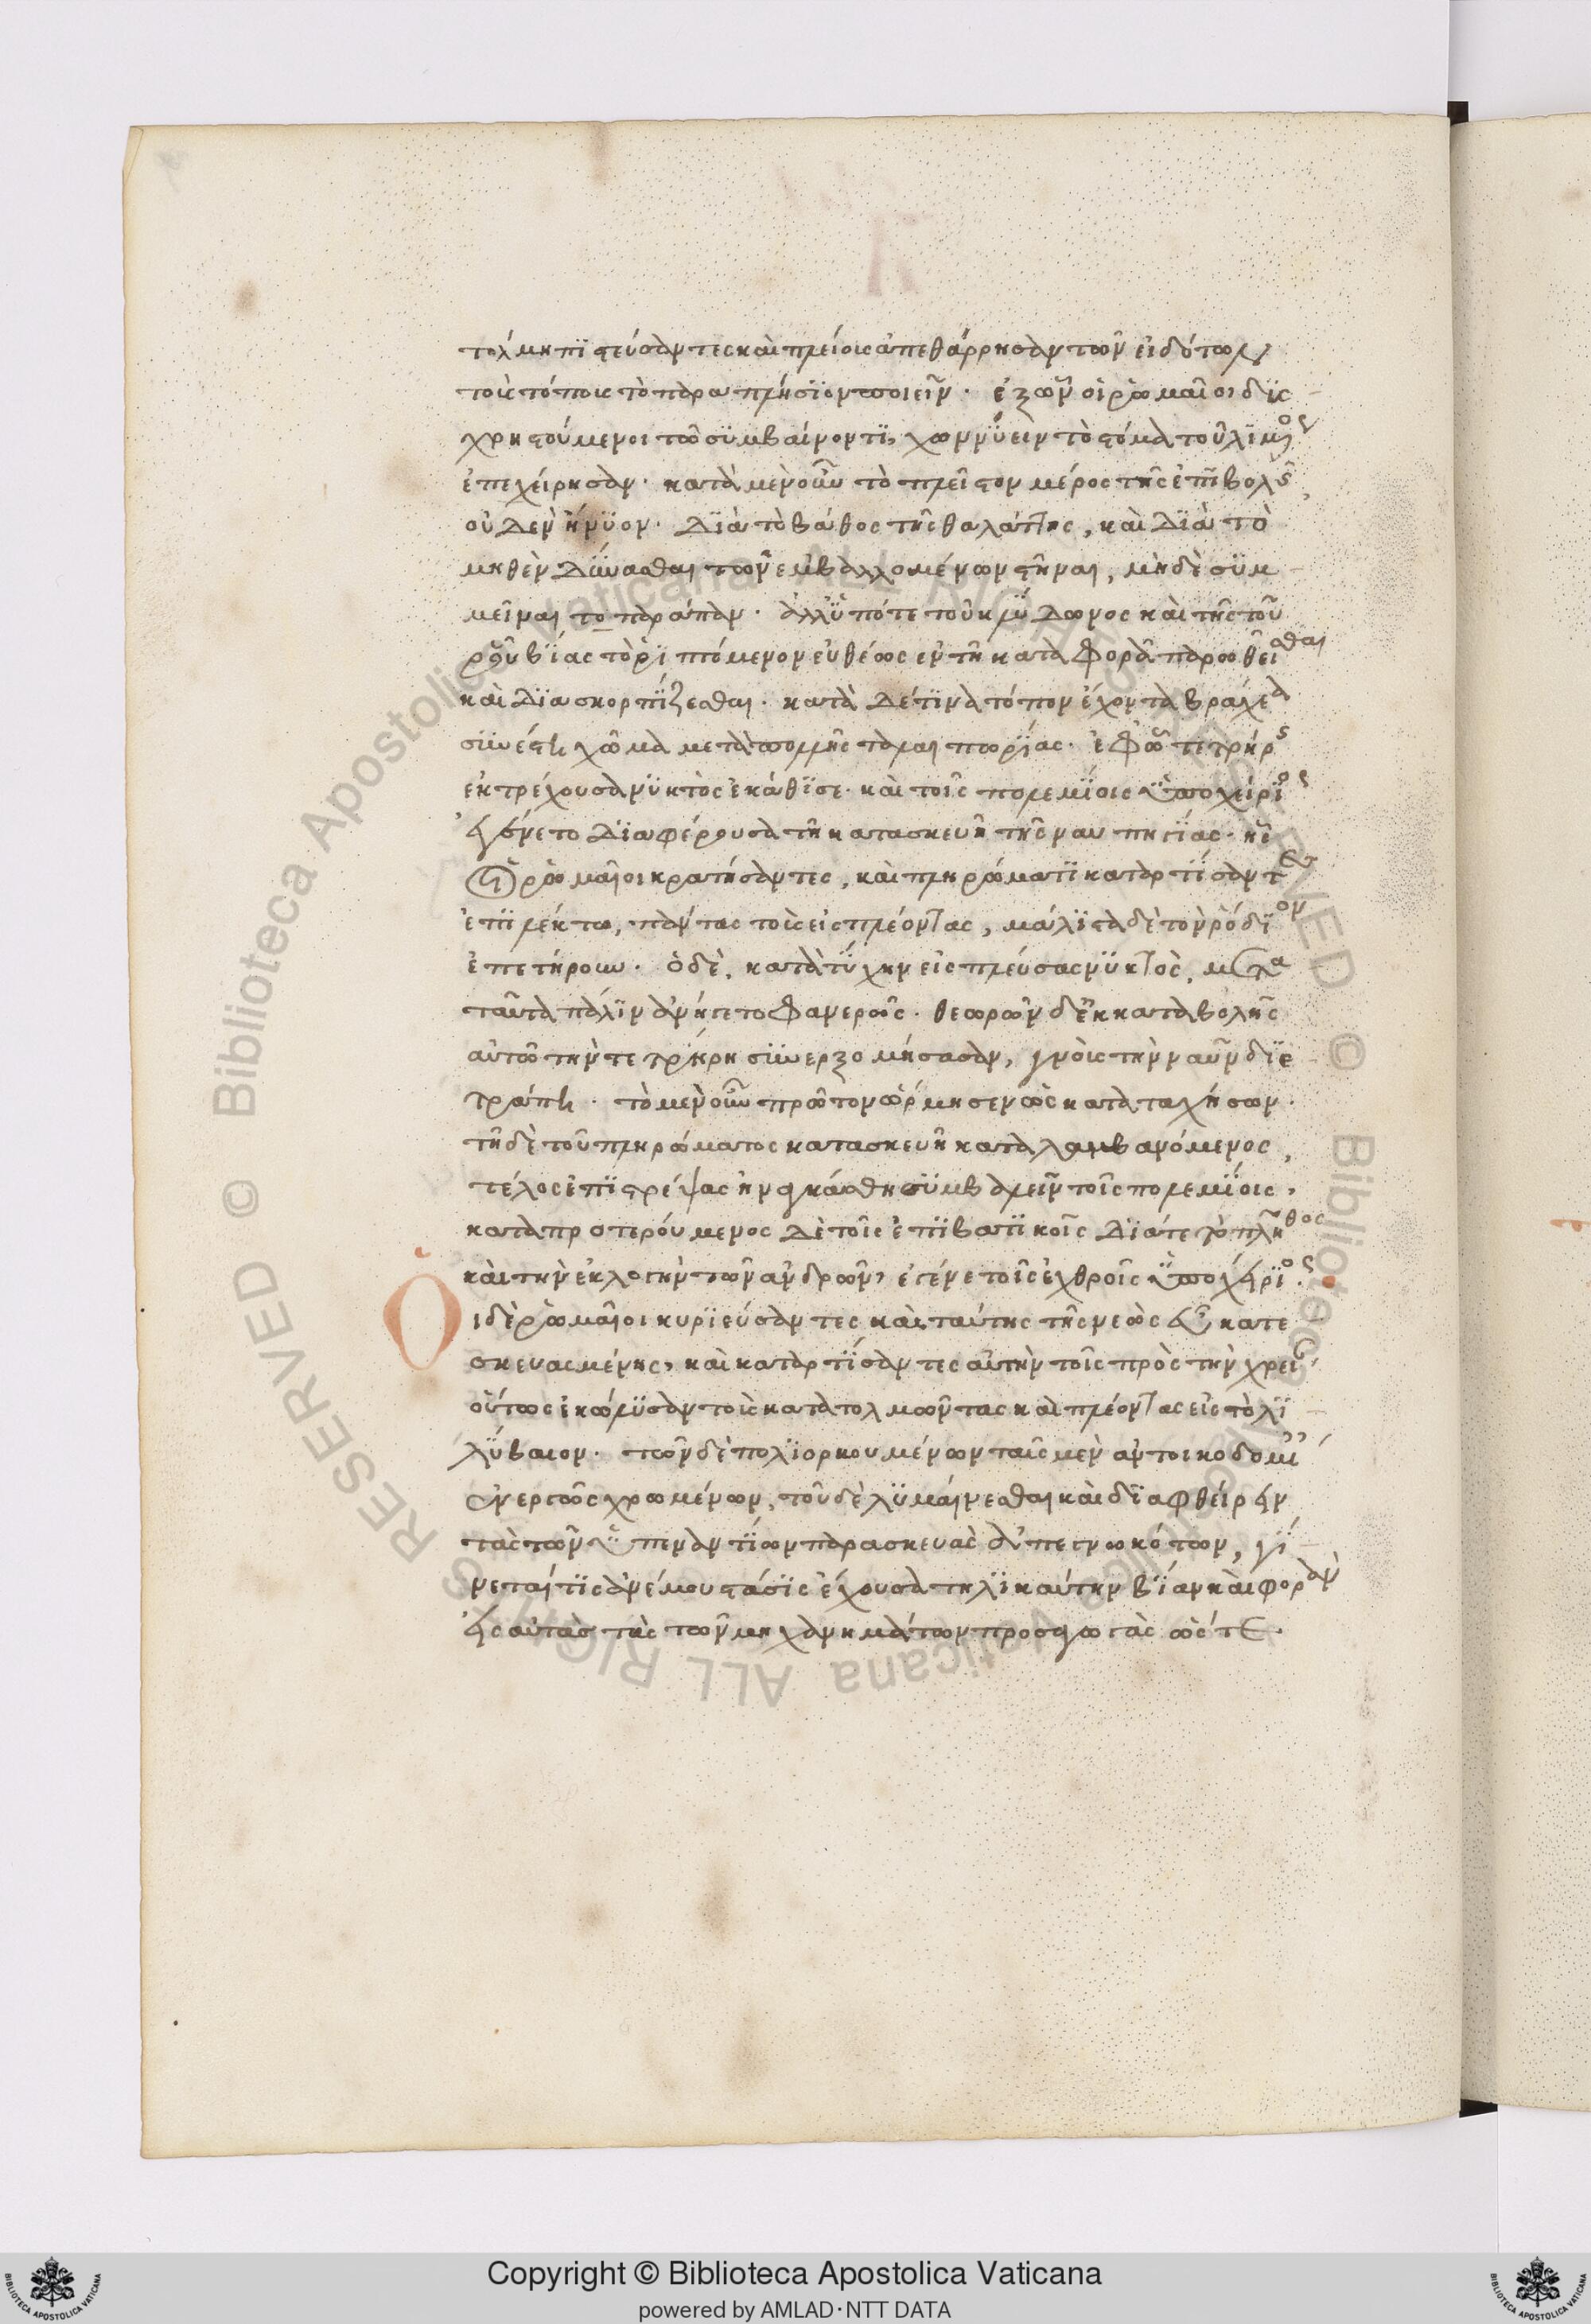 τόλμη πιστεύσαντες καὶ πλείοις ἀπεθάρρησαν τῶν εἰδότων
τοὺς τόπους τὸ παραπλήσιον ποιεῖν. ἐξ ὧν οἱ ῥωμαῖοι δυσ
χρηστούμενοι τῶ συμβαίνοντι, χωννύειν τὸ στόμα τοῦ λιμένος
ἐπεχείρησαν. κατὰ μὲν οὖν τὸ πλεῖστον μέρος τῆς ἐπιβολῆς,
οὐδὲν ἤνυον. διὰ τὸ βάθος τῆς θαλάττης, καὶ διὰ τὸ
μηθὲν δύνασθαι τῶν ἐμβαλλομένων στῆναι, μηδὲ συμ
μεῖναι το παράπαν. ἀλλ' ὑπό τε τοῦ κλύδωνος καὶ τῆς τοῦ
ῥοῦ βίας τὸ ῥιπτόμενον εὐθέως ἐν τῆ καταφορᾶ παρωθεῖσθαι
καὶ διασκορπίζεσθαι. κατὰ δέ τινα τόπον ἔχοντα βραχέα
συνέστη χῶμα μετὰ πολλῆς ταλαιπωρίας. ἐφ' ὧ τετρήρης
ἐκτρέχουσα νυκτὸς ἐκάθισε. καὶ τοῖς πολεμίοις ὑποχείριος
ἐγένετο διαφέρουσα τῆ κατασκευῆ τῆς ναυπηγίας. ἧς
οἱ ῥωμαῖοι κρατήσαντες, καὶ πληρώματι καταρτίσαντες
ἐπιλέκτω, πάντας τοὺς εἰσπλέοντας, μάλιστα δὲ τὸν ῥόδιον
ἐπετήρουν. ὁ δὲ, κατὰ τύχην εἰσπλεύσας νυκτὸς, μετὰ
ταῦτα πάλιν ἀνήγετο φανερῶς. θεωρῶν δ' ἐκ καταβολῆς
αὐτῶ τὴν τετρήρη συνεξορμήσασαν, γνοὺς τὴν ναῦν διε
τράπη. τὸ μὲν οὖν πρῶτον ὥρμησεν ὡς καταταχήσων.
τῆ δὲ τοῦ πληρώματος κατασκευῆ καταλαμβανόμενος,
τέλος ἐπιστρέψας ἠναγκάσθη συμβαλεῖν τοῖς πολεμίοις,
καταπροτερούμενος δὲ τοῖς ἐπιβατικοῖς διά τε τὸ πλῆθος
καὶ τὴν ἐκλογὴν τῶν ἀνδρῶν, ἐγένετο τοῖς ἐχθροῖς ὑποχείριος.
Οἱ δὲ ῥωμαῖοι κυριεύσαντες καὶ ταύτης τῆς νεὼς εὖ κατε
σκευασμένης, καὶ καταρτίσαντες αὐτὴν τοῖς πρὸς τὴν χρείαν
οὕτως ἐκώλυσαν τοὺς κατατολμῶντας καὶ πλέοντας εἰς τὸ λι
λύβαιον. τῶν δὲ πολιορκουμένων ταῖς μὲν ἀντοικοδομίαις
ἐνεργῶς χρωμένων, τοῦ δὲ λυμαίνεσθαι καὶ διαφθείρειν
τὰς τῶν ὑπεναντίων παρασκευὰς ἀπεγνωκότων, γί
νεταί τις ἀνέμου στάσις ἔχουσα τηλικαύτην βίαν καὶ φορὰν
εἰς αὐτὰς τὰς τῶν μηχανημάτων προσαγωγὰς ὥστε
Copyright © Biblioteca Apostolica Vaticana
powered by AMLAD·NTT DATA